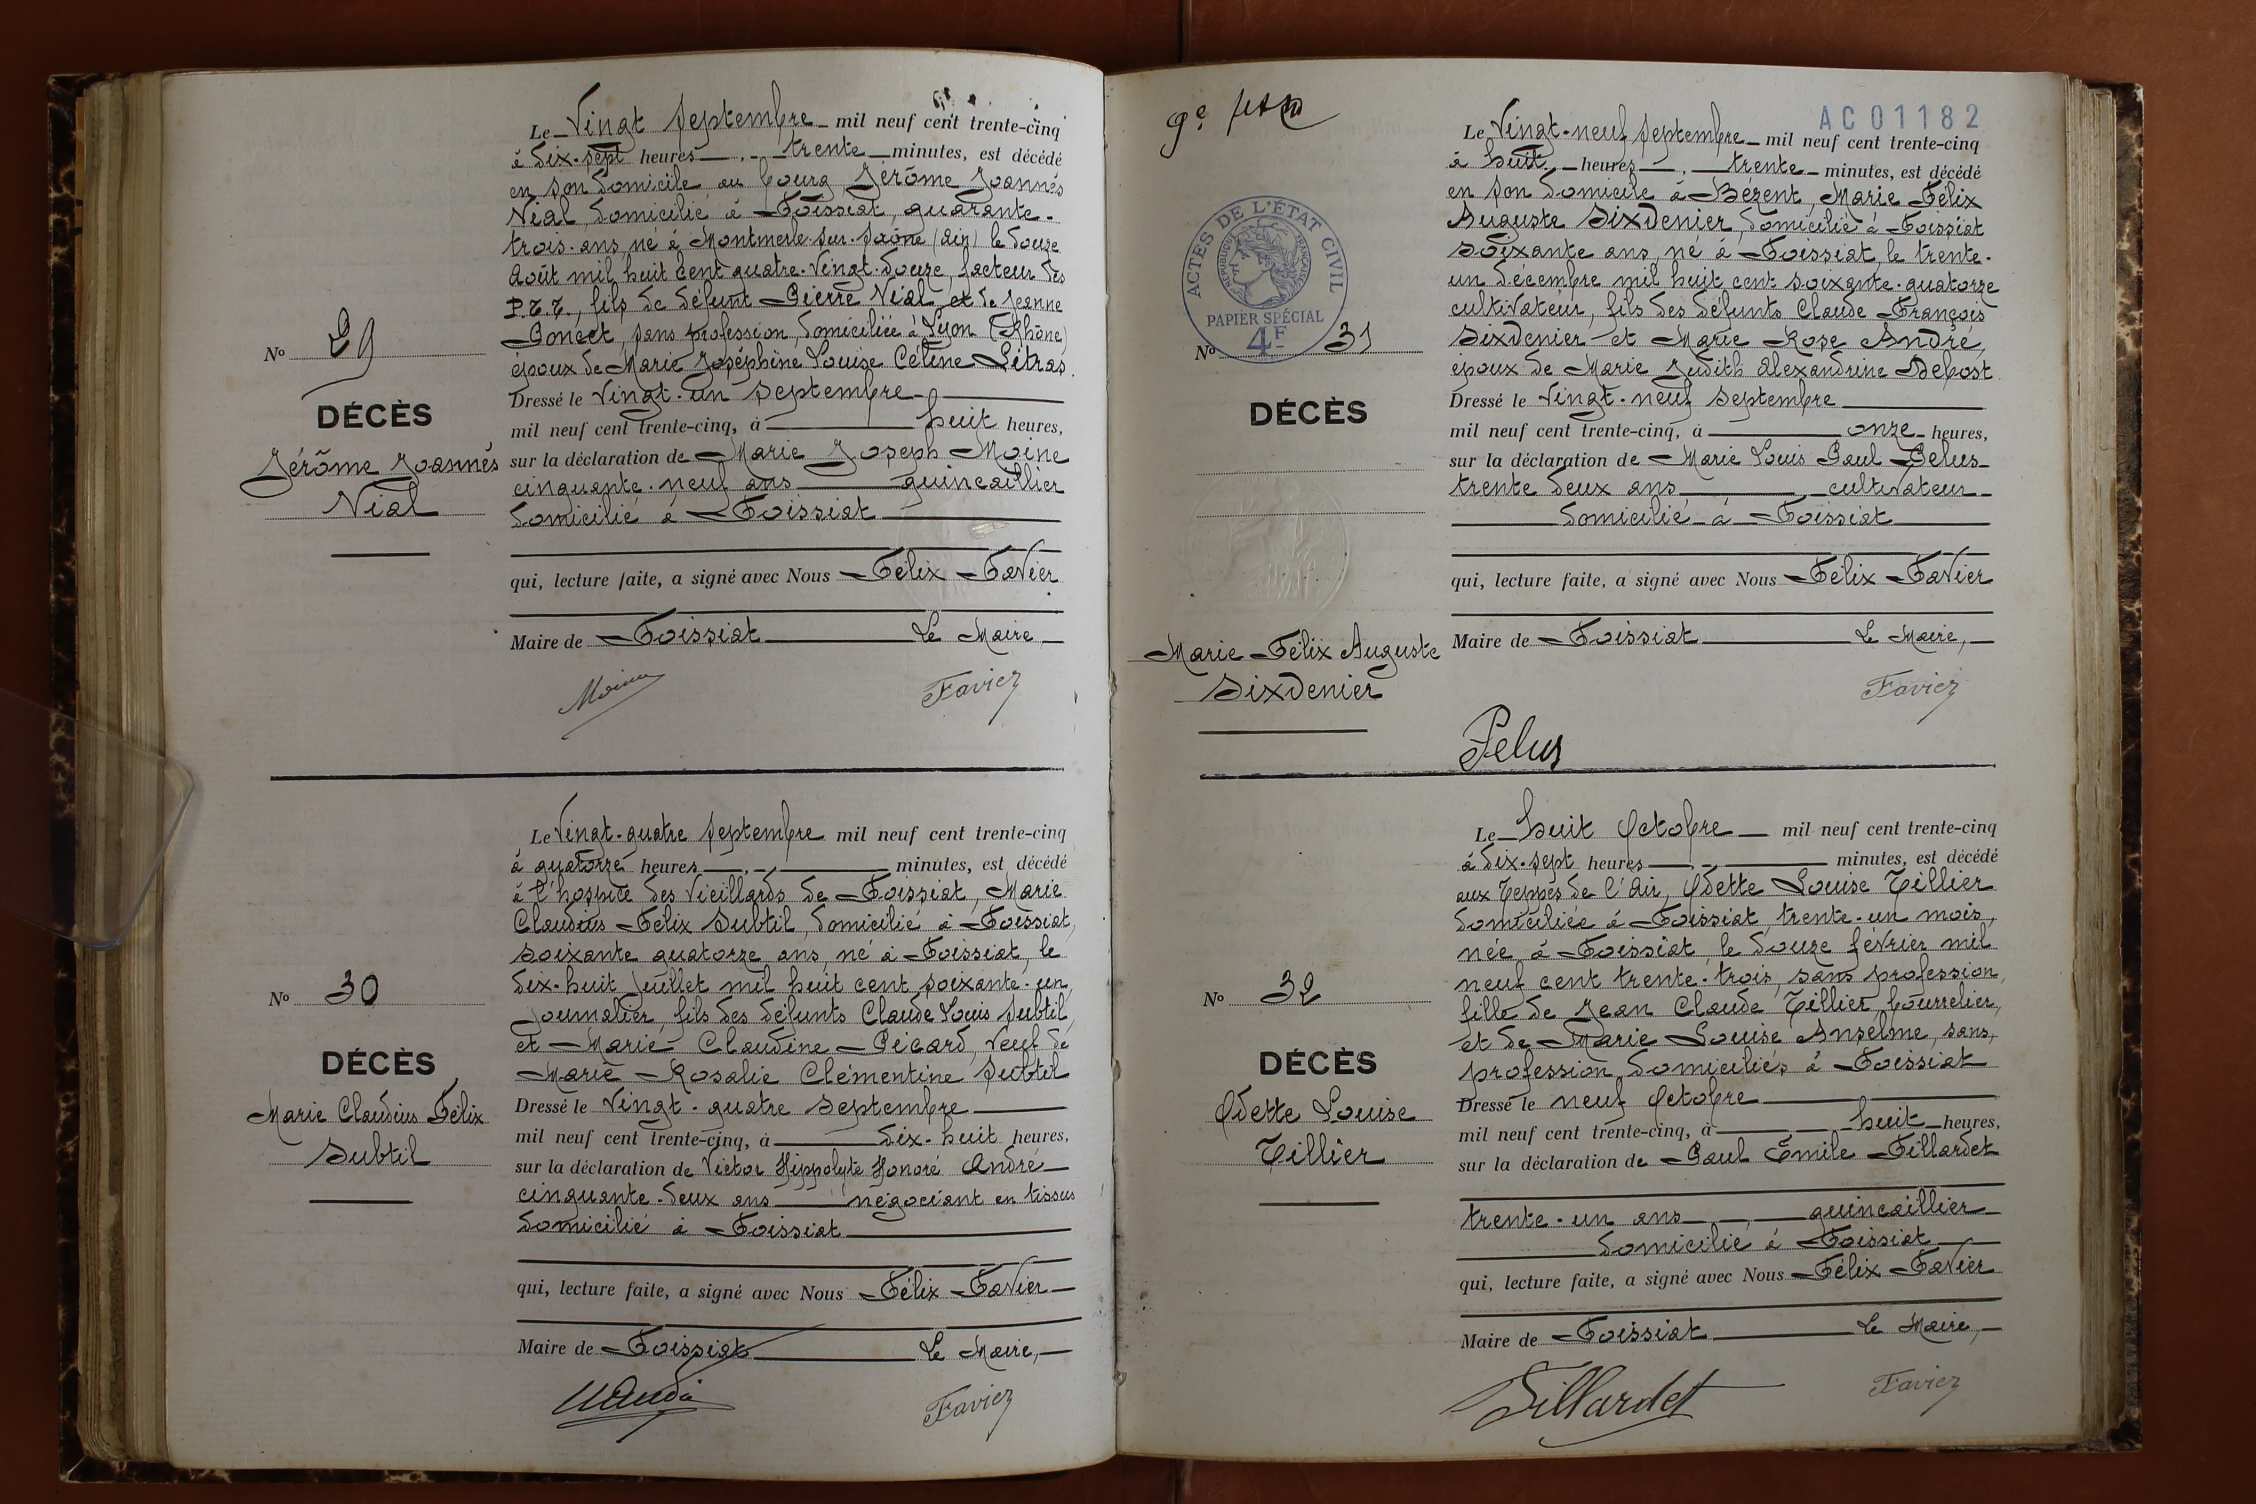 Le Vingt Septembre mil neuf cent trente-cinq
à dix-sept heures trente minutes, est décédé
en son domicile au bourg Jérôme Joannès
Vial, domicilié à Foissiat, quarante-
trois ans, né à Montmerle-sur-Saône (Ain) le douze
Août mil huit cent quatre-vingt-douze, facteur des
P.T.T., fils de défunt Pierre Vial et de Jeanne
Goncet, sans profession, domiciliée à Lyon (Rhône)
époux de Marie Joséphine Louise Céline Litras.
Dressé le vingt-un Septembre
mil neuf cent trente-cinq, à huit heures,
sur la déclaration de Marie Joseph Moine
cinquante-neuf ans quincaillier
domicilié à Foissiat
qui, lecture faite, a signé avec Nous Félix Favier
Maire de Foissiat Le Maire,
Moine Favier
No 29
DÉCÈS
Jérôme Joannès
Vial
Le Vingt-quatre Septembre mil neuf cent trente-cinq
à quatorze heures minutes, est décédé
à l'hospice des Vieillards de Foissiat, Marie
Claudius Félix Subtil, domicilié à Foissiat,
soixante quatorze ans, né à Foissiat, le
dix-huit Juillet mil huit cent soixante-un,
Journalier, fils des défunts Claude Louis Subtil,
et Marie Claudine Picard, veuf de
Marie Rosalie Clémentine Subtil
Dressé le Vingt-quatre Septembre
mil neuf cent trente-cinq, à dix-huit heures,
sur la déclaration de Victor Hippolyte Honoré André
cinquante-deux ans négociant en tissus
domicilié à Foissiat
qui, lecture faite, a signé avec Nous Félix Favier
Maire de Foissiat Le Maire,
Favier
No 30
DÉCÈS
Marie Claudius Félix
Subtil
9e
AC01182
ACTES DE L'ÉTAT CIVIL
RÉPUBLIQUE FRANÇAISE
PAPIER SPÉCIAL
4F
Le Vingt-neuf Septembre mil neuf cent trente-cinq
à huit heures trente minutes, est décédé
en son domicile à Bézent, Marie Félix
Auguste Sixdenier, domicilié à Foissiat
soixante ans, né à Foissiat, le trente-
un décembre mil huit cent soixante-quatorze
cultivateur, fils des défunts Claude François
Sixdenier et Marie Rose André,
époux de Marie Judith Alexandrine Debost
Dressé le Vingt-neuf Septembre
mil neuf cent trente-cinq, à onze heures,
sur la déclaration de Marie Louis Paul Pelus
trente deux ans cultivateur
domicilié à Foissiat
qui, lecture faite, a signé avec Nous Félix Favier
Maire de Foissiat Le Maire,
Favier
Pelus
No 31
DÉCÈS
Marie Félix Auguste
Sixdenier
Le huit Octobre mil neuf cent trente-cinq
à dix-sept heures minutes, est décédé
aux Teppes de l'Air, Odette Louise Tillier
domiciliée à Foissiat, trente-un mois,
née à Foissiat, le douze février mil
neuf cent trente-trois, sans profession,
fille de Jean Claude Tillier, bourrelier,
et de Marie Louise Anselme, sans,
profession, domiciliés à Foissiat
Dressé le neuf Octobre
mil neuf cent trente-cinq, à huit heures,
sur la déclaration de Paul Emile Fillardet
trente-un ans quincaillier
domicilié à Foissiat
qui, lecture faite, a signé avec Nous Félix Favier
Maire de Foissiat Le Maire,
Fillardet Favier
No 32
DÉCÈS
Odette Louise
Tillier